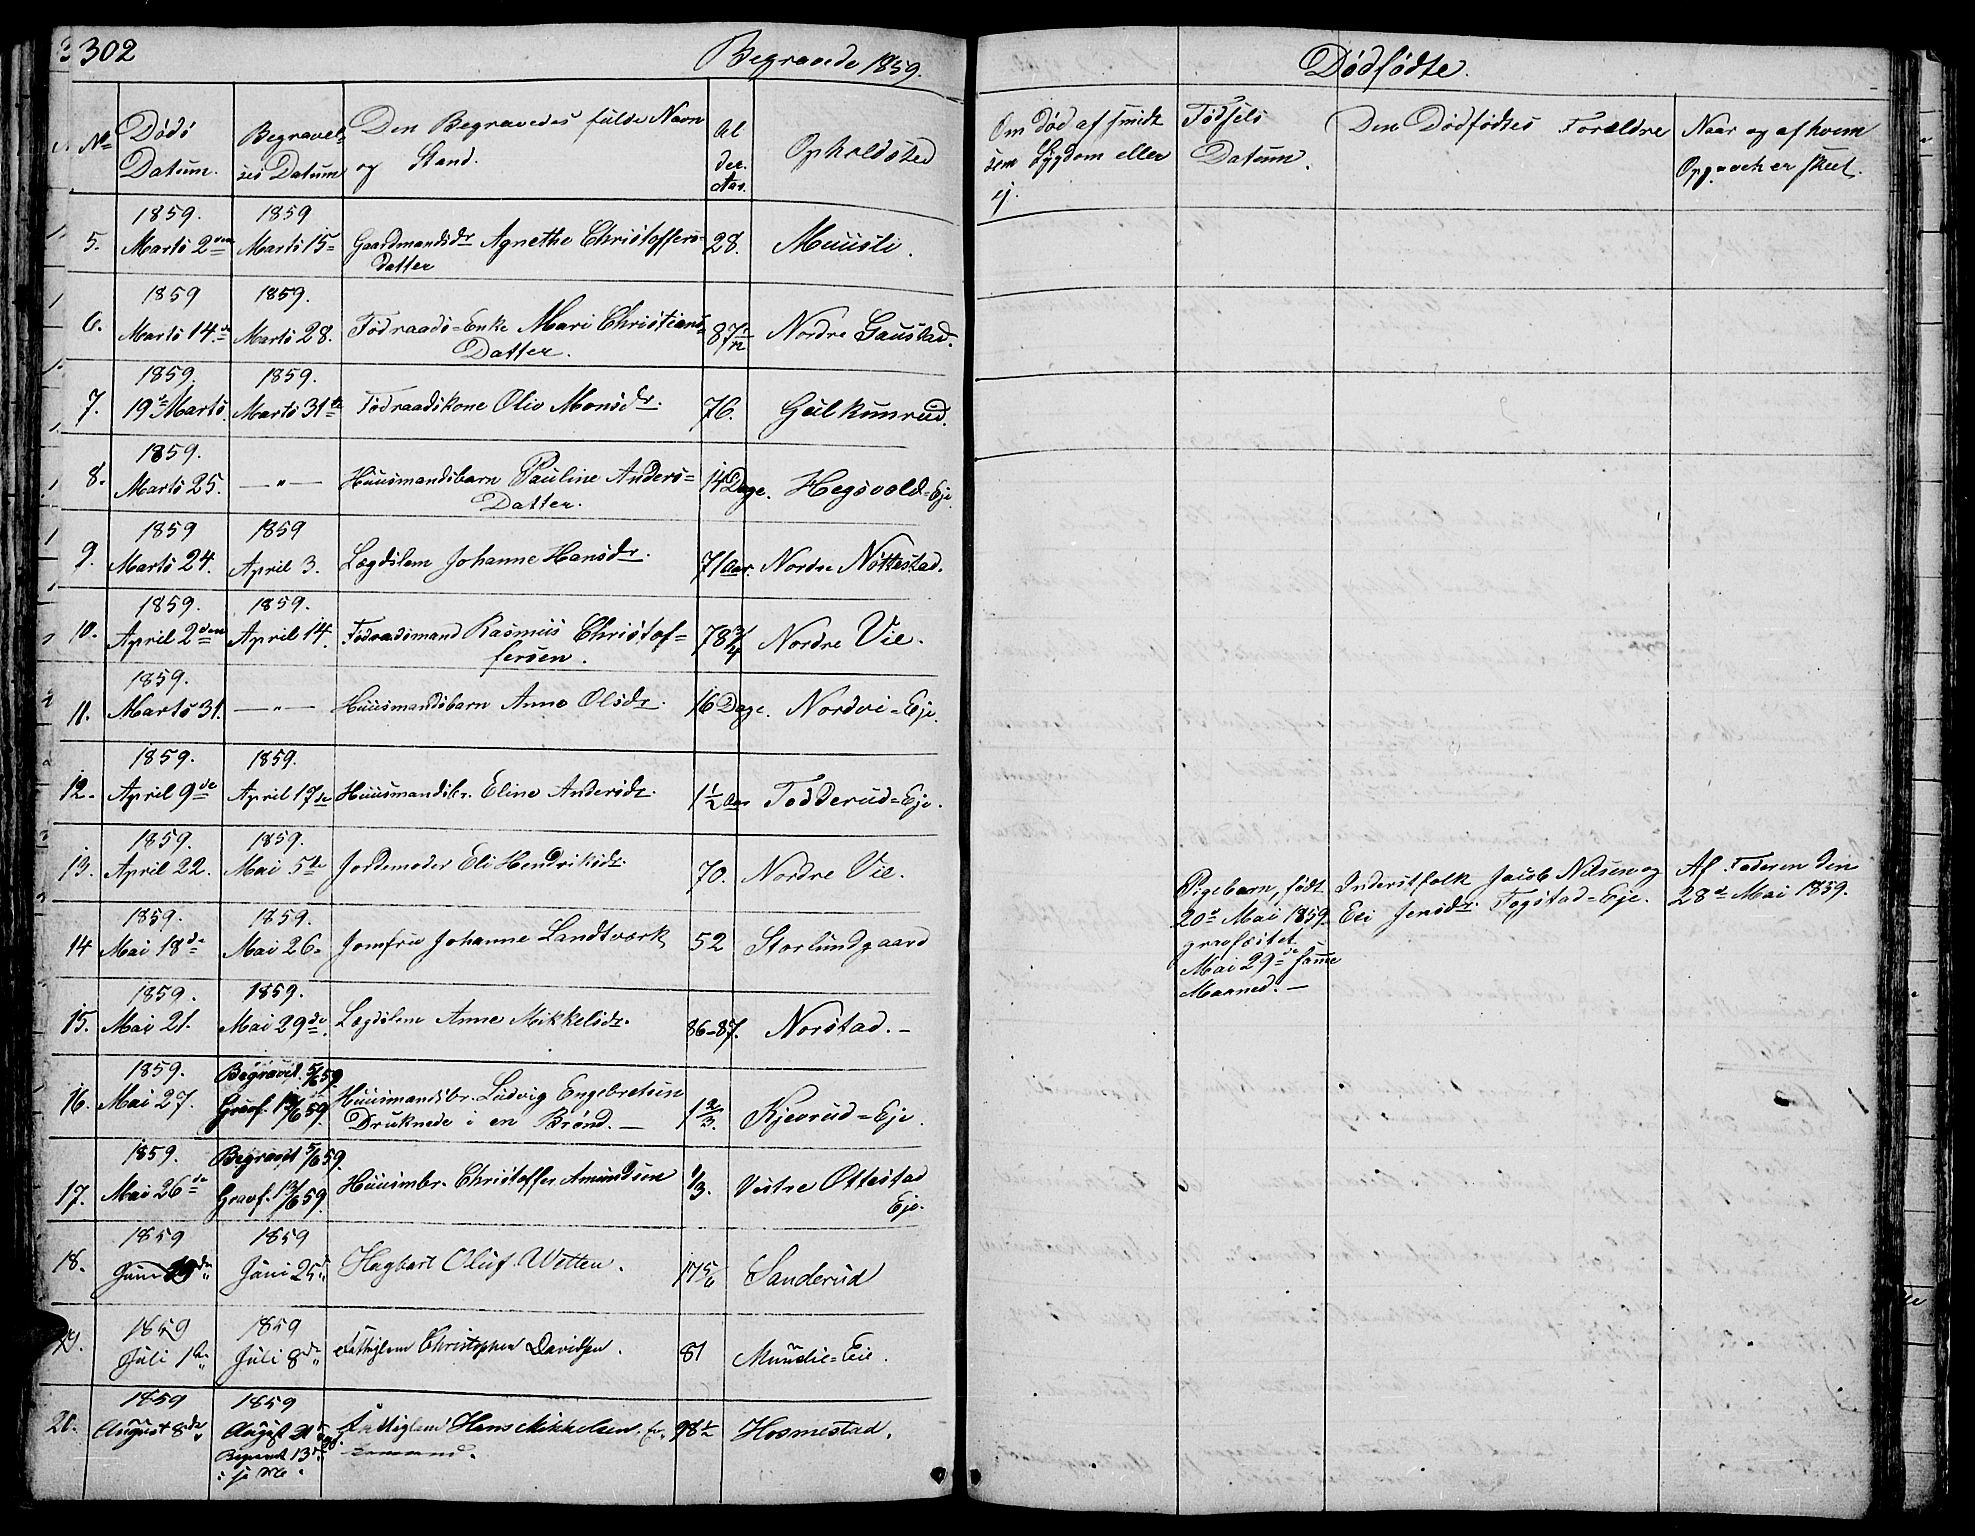 302
Begravede 1859.
No
Døds Datum.
Begravelses Datum
Den Begravedes fulde Navn og Stand.
Alder. Aar.
Opholdsted
5.
1859. Marts 2den
1859 Marts 15
Gaardmandsdr Agnethe Christoffers= datter
28.
Muusli.
6.
1859 Marts 14de
1859. Marts 28.
Födraads=Enke Mari Christians= Datter.
87 1/12
Nordre Gaustad.
7.
1859. 19de Marts.
1859. Marts 31te
Födraadskone Olio Monsdr.
76.
Gulkunrud.
8.
1859. Marts 25.
— " —
Huusmandsbarn Pauline Anders= Datter.
14 Dage.
Hegsvold=Eje
9.
1859 Marts 24.
1859 April 3.
Lægdslem Johanne Hansdr.
71 Aar.
Nordre Nöttestad.
10.
1859. April 2den
1859. April 14.
Födraadsmand Rasmus Christof= fersen.
78 3/4
Nordre Vie.
11.
1859. Marts 31.
— " —
Huusmandsbarn Anne Olsdr.
16 Dage.
Nordvi=Eje.
12.
1859. April 9de
1859. April 17de
Huusmandsbr. Eline Andersdr.
1 1/2 Aar
Todderud=Eje.
13.
1859. April 22.
1859. Mai 5te
Jordemoder Eli Hendriksdr.
70.
Nordre Vie.
14
1859. Mai 18de
1859. Mai 26.
Jomfru Johanne Landtværk
52
Storlundgaard
15.
1859. Mai 21.
1859. Mai 29de
Lægdslem Anne Mikkelsdr.
86-87.
Norstad. —
16.
1859. Mai 27.
Begravet. 5/6 59. Gravf. 13/6 59.
Huusmandsbr. Ludvig Engebretsen Druknede i en Brønd. —
1 2/3.
Kjevrud=Eje.
17.
1859. Mai 26de
Begravet 5/6 59. Gravf. 13/6 59.
Huusmbr. Christoffer Amundsen
1/3.
Vestre Ottestad Eje.
18.
1859 Juni
1859 Juni 25
Hagbart Oluf Wetten.
17 5/6
Sanderud
19.
1859 Juli 1te
1859 Juli 8de
Fattiglem Christopher Davidsen.
81
Muuslie=Eie.
20.
1859 August 8de
1859 August 21 Begravet 13
Fattiglem Hans Mikkelsen
98 1/2
Hosmestad.
Dødfødte.
Om död af smitsom Sygdom eller ej.
Födsels Datum.
Den Dödfödtes Forældre
Naar og af hvem Opgav. er skeet.
Pigebarn, födt 20de Mai 1859 gravfæstet Mai 29de samme Maaned. —
Inderstfolk Jacob Nilsen og Eli Jensdr. Togstad=Eje.
Af Faderen den 28de Mai 1859.